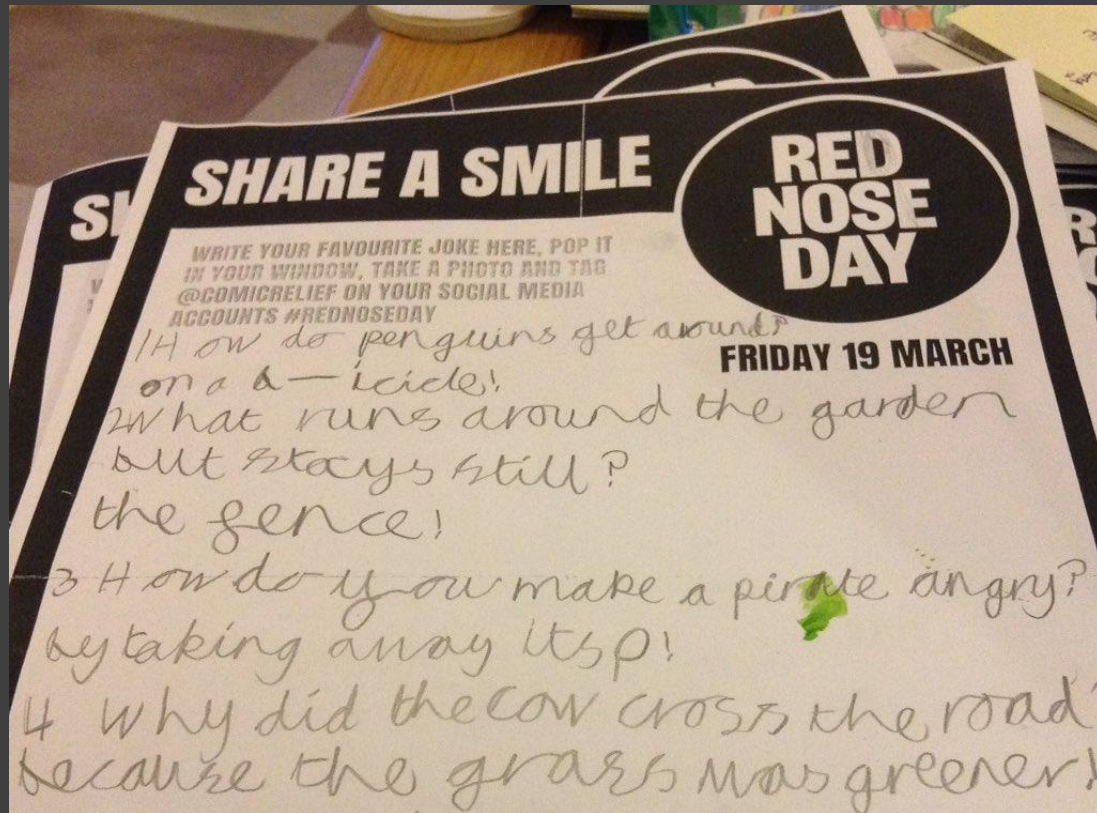 SHARE A SMILE
RED
NOSE
DAY
WRITE YOUR FAVOURITE JOKE HERE, POP IT
IN YOUR WINDOW, TAKE A PHOTO AND TAG
@COMICRELIEF ON YOUR SOCIAL MEDIA
ACCOUNTS #REDNOSEDAY
FRIDAY 19 MARCH
1 How do penguins get around?
on a b—icicle!
2 What runs around the garden
but stays still?
the fence!
3 How do you make a pirate angry?
by taking away its p!
4 Why did the cow cross the road
because the grass was greener!